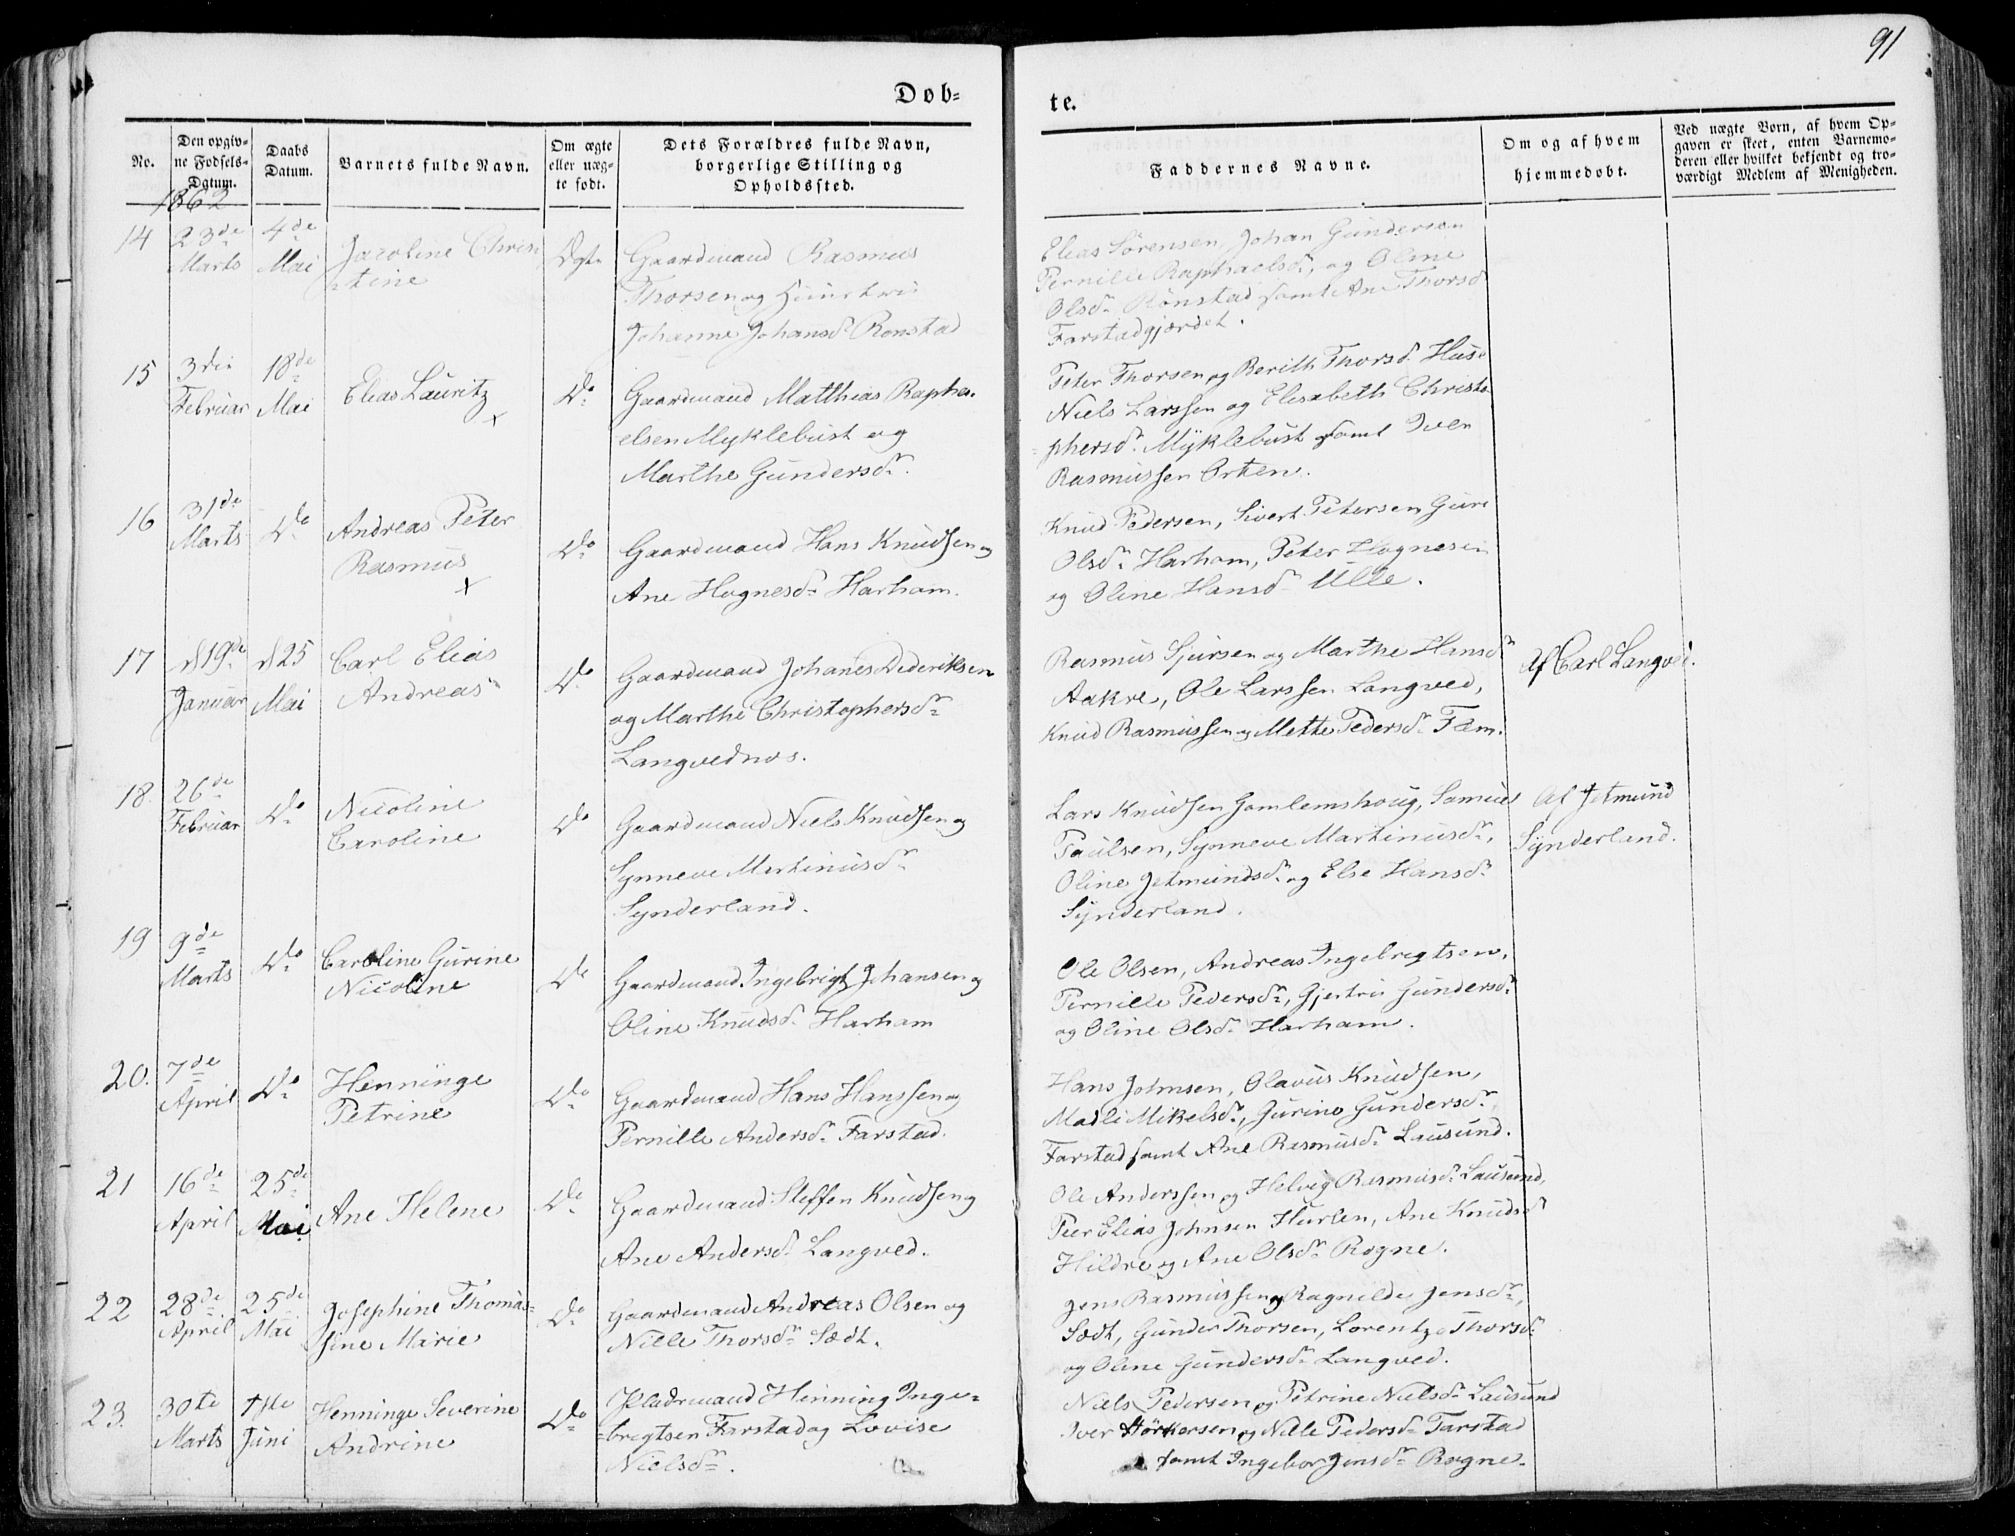 91
Dob=
te.
No.
Den opgiv=
ne Fodsels=
Datum.
Daabs
Datum.
Barnets fulde Navn.
Om ægte
eller uæg=
te født.
Dets Forældres fulde Navn,
borgerlige Stilling og
Opholdssted.
Faddernes Navne.
Om og af hvem
hjemmedobt.
Ved uægte Born, af hvem Op=
gaven er skeet, enten Barnemo=
deren eller hvilket bekjendt og tro=
værdigt Medlem af Menigheden.
1862
14
23de
Marts
4de
Mai
Jacoline Chris
stine
Ægte
Gaardmand Rasmus
Thorsen og Huustru
Johanne Johansdr Rønstad
Elias Sörensen, Johan Gundersen
Pernille Raphaelsdr, og Oline
Olsdr Rönstad samt Ane Thorsd
Farstadgjærdet.
15
3die
Februar
18de
Mai
Elias Lauritz
x
Do
Gaardmand Matthias Rapha=
elsen Myklebust og
Marthe Gundersdr.
Peter Thorsen og Berith Thorsd. Huse
Niels Larssen og Elisabeth Christo
=phersdr. Myklebust samt Iver
Rasmussen Orten.
16
31de
Marts
Do
Andreas Peter
Rasmus
x
Do
Gaardmand Hans Knudsen og
Ane Hognesdr Harham.
Knud Pedersen, Sivert Petersen Guri
Olsdr Harham, Peter Hognesen
og Oline Hansd Ulle.
17
d 19de
Januar
d 25
Mai
Carl Elias
Andreas
Do
Gaardmand Johanes Diderik​sen
og Marthe Christophersdr
Langvednes.
Rasmus Sjursen og Marthe Hansdr
Aakre, Ole Larssen Langved,
Knud Rasmussen og Mette Pedersdr Fæm.
Af Carl Langved.
18.
26de
Februar
Do
Nicoline
Caroline
Do
Gaardmand Niels Knudsen og
Synneve Martinusdr
Synderland.
Lars Knudsen Gamlemshoug, Samuel
Paulsen, Synneve Martinusdr,
Oline Jetmundsdr og Else Hansdr
Synderland.
Af Jetmund
Synderland.
19
9de
Marts
Do
Caroline Gurine
Nicoline
Do
Gaardmand Ingebrigt Johansen og
Oline Knudsdr Harham
Ole Olsen, Andreas Ingebrigtsen,
Pernille Pedersdr, Gjertru Gundersdr
og Oline Olsdr Harham.
20.
7de
April
Do
Henninge
Petrine
Do
Gaardmand Hans Hanssen og
Pernille Andersdr Farstad.
Hans Johnsen, Olavus Knudsen,
Madli Mikelsdr, Gurine Gundersdr,
Farstad samt Ane Rasmusdr Lausund.
21
16de
April
25de
Mai
Ane Helene
Do
Gaardmand Steffen Knudsen og
Ane Andersdr Langved.
Ole Anderssen og Helvig Rasmusdr Lausund,
Peer Elias Johnsen Hurlen, Ane Knudsd
Hildre og Ane Olsdr Rogne.
22
28de
April
25de
Mai
Josephine Thomas=
sine Marie
Do
Gaardmand Andreas Olsen og
Nille Thorsdr Sædt.
Jens Rasmussen og Ragnilde Jensdr,
Sædt, Gunder Thorsen, Lorentze Thorsdr
og Oline Gundersdr Langved.
23.
30te
Marts
1ste
Juni
Henninge Severine
Andrine
Do
Pladsmand Henning Inge=
=brigtsen Farstad og Lovise
Nielsdr.
Niels Pedersen og Petrine Nielsdr Lausund
Iver Störkersen og Nille Pedersdr Farstad
samt Ingebor Jensdr Rogne.